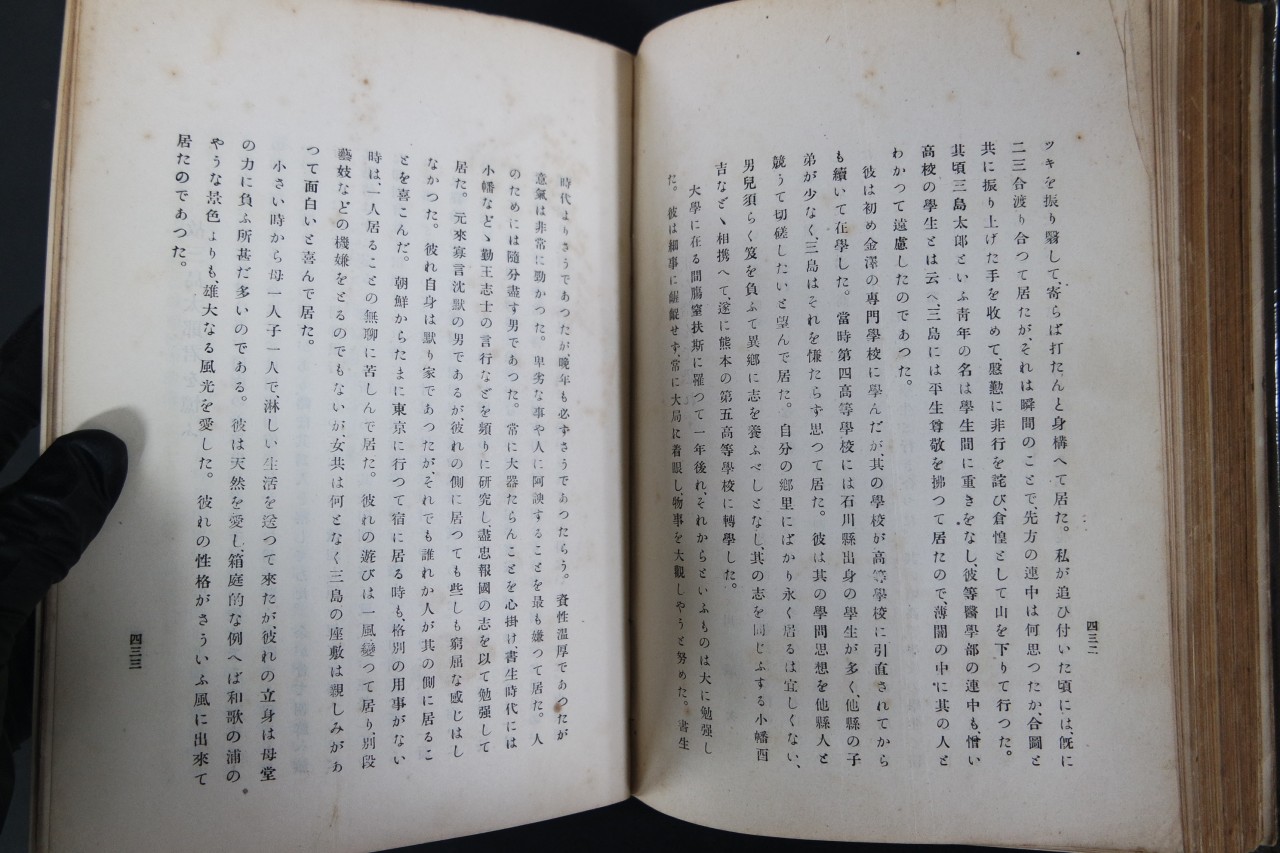 ツキを振り翳して、寄らば打たんと身構へて居た。私が追ひ付いた頃には、旣に
二三合渡り合つて居たが、それは瞬間のことで、先方の連中は何思つたか、合圖と
共に振り上げた手を收めて、慇懃に非行を詫び、倉惶として山を下りて行つた。
其頃三島太郞といふ靑年の名は學生間に重きをなし、彼等醫學部の連中も、憎い
高校の學生とは云へ、三島には平生尊敬を拂つて居たので、薄闇の中に其の人と
わかつて遠慮したのであつた。
彼は初め金澤の專門學校に學んだが、其の學校が高等學校に引直されてから
も續いて在學した。當時第四高等學校には石川縣出身の學生が多く、他縣の子
弟が少なく、三島はそれを慊たらず思つて居た。彼は其の學問思想を他縣人と
競うて切磋したいと望んで居た。自分の鄕里にばかり永く居るは宜しくない、
男兒須らく笈を負ふて異鄕に志を養ふべしとなし、其の志を同じふする小幡酉
吉などゝ相携へて、遂に熊本の第五高等學校に轉學した。
大學に在る間膓窒扶斯に罹つて一年後れ、それからといふものは大に勉强し
た。彼は細事に齷齪せず、常に大局に着眼し、物事を大觀しやうと努めた。書生
四三二
時代よりさうであつたが、晩年も必ずさうであつたらう。資性溫厚であつたが
意氣は非常に勁かつた。卑劣な事や人に阿諛することを最も嫌つて居た。人
のためには隨分盡す男であつた。常に大器たらんことを心掛け、書生時代には
小幡などゝ勤王志士の言行などを頻りに硏究し、盡忠報國の志を以て勉强して
居た。元來寡言沈默の男であるが彼れの側に居つても些しも窮屈な感じはし
なかつた。彼れ自身は默り家であつたが、それでも誰れか人が其の側に居るこ
とを喜こんだ。朝鮮からたまに東京に行つて宿に居る時も、格別の用事がない
時は、一人居ることの無聊に苦しんで居た。彼れの遊びは一風變つて居り、別段
藝妓などの機嫌をとるのでもないが、女共は何となく三島の座敷は親しみがあ
つて面白いと喜んで居た。
小さい時から母一人子一人で、淋しい生活を送つて來たが彼れの立身は母堂
の力に負ふ所甚だ多いのである。彼は天然を愛し箱庭的な例へば和歌の浦の
やうな景色よりも、雄大なる風光を愛した。彼れの性格がさういふ風に出來て
居たのであつた。
四三三